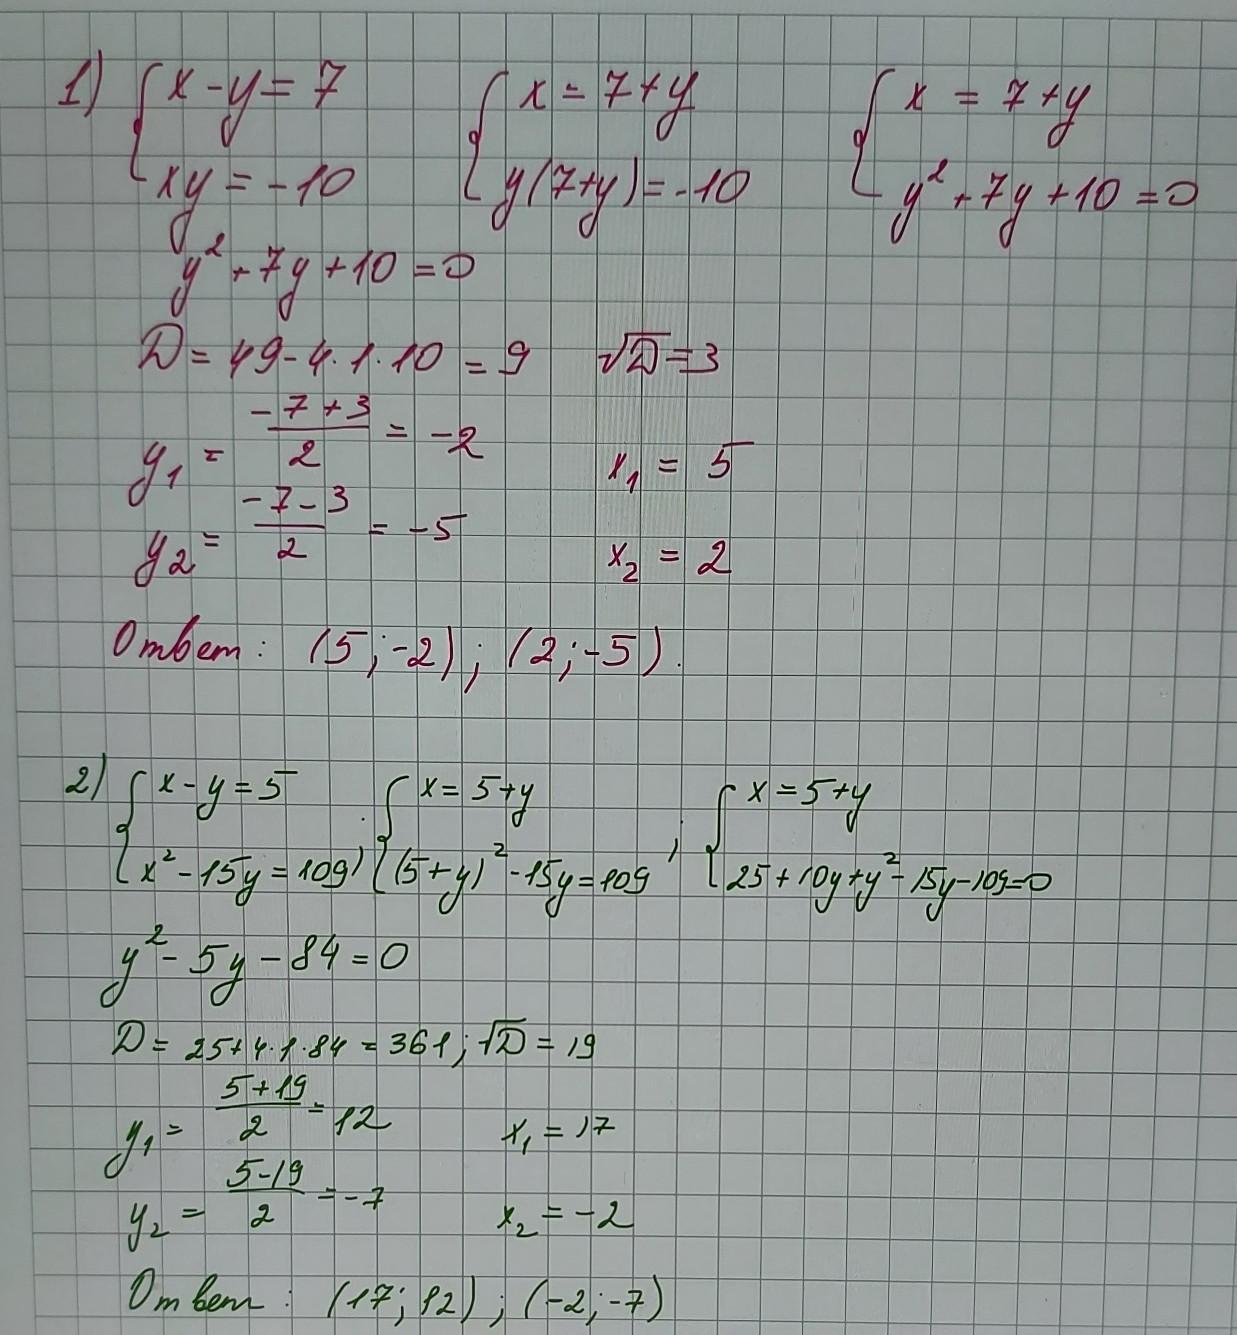 1) { x - y = 7 { x = 7 + y { x = 7 + y
xy = -10 y(7+y) = -10 y² + 7y + 10 = 0
y² + 7y + 10 = 0
D = 49 - 4·1·10 = 9 √D = 3
y₁ = (-7+3)/2 = -2 x₁ = 5
y₂ = (-7-3)/2 = -5 x₂ = 2
Ответ: (5; -2); (2; -5).
2) { x - y = 5 ; { x = 5 + y ; { x = 5 + y
x² - 15y = 109 (5+y)² - 15y = 109 25 + 10y + y² - 15y - 109 = 0
y² - 5y - 84 = 0
D = 25 + 4·1·84 = 361; √D = 19
y₁ = (5+19)/2 = 12 x₁ = 17
y₂ = (5-19)/2 = -7 x₂ = -2
Ответ: (17; 12); (-2; -7)